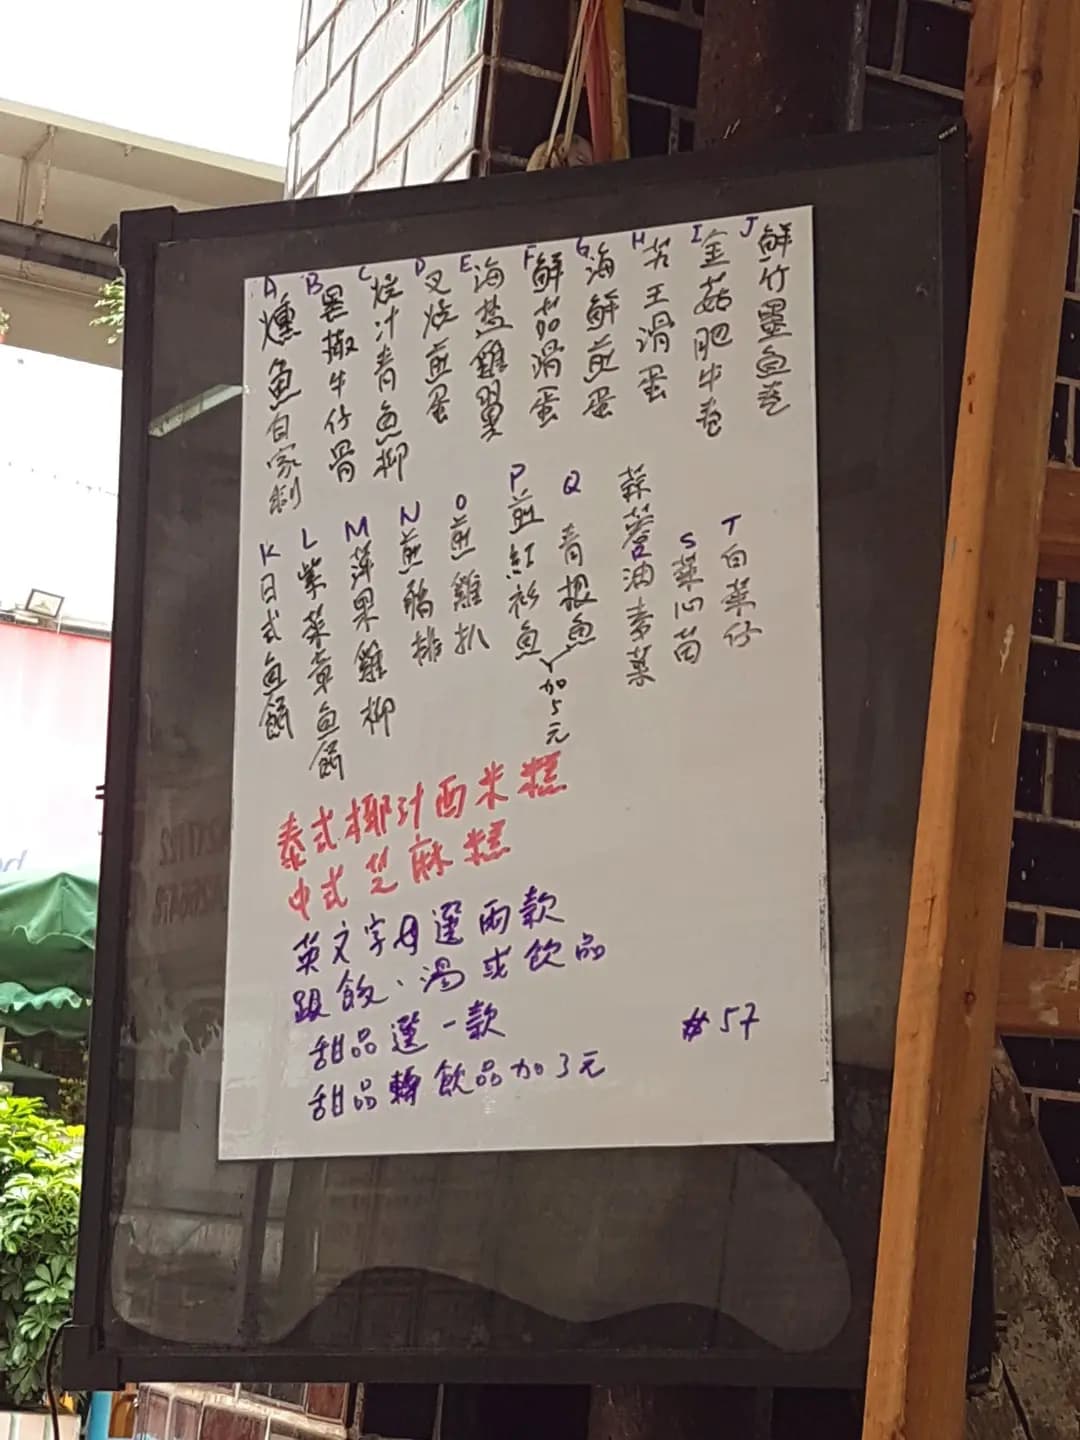 A 燻魚自家制
B 黑椒牛仔骨
C 燒汁青魚柳
D 叉燒煎蛋
E 海鹽雞翼
F 鮮茄滑蛋
G 海鮮煎蛋
H 芥王滑蛋
I 金菇肥牛卷
J 鮮竹墨魚卷
K 日式魚餅
L 紫菜章魚餅
M 蘋果雞柳
N 煎豬排
O 煎雞扒
P 煎紅衫魚
Q 青根魚
加5元
蒜蓉油素菜
S 菜心苗
T 白菜仔
泰式椰汁西米糕
中式芝麻糕
英文字母選兩款
跟飯、湯或飲品
甜品選一款
$57
甜品轉飲品加3元